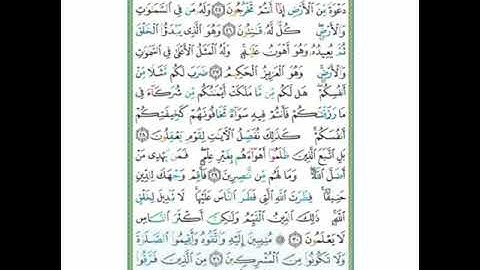 دَعْوَةً مِّنَ ٱلْأَرْضِ إِذَآ أَنتُمْ تَخْرُجُونَ ٢٥ وَلَهُۥ مَن فِى ٱلسَّمَٰوَٰتِ
وَٱلْأَرْضِ ۖ كُلٌّ لَّهُۥ قَٰنِتُونَ ٢٦ وَهُوَ ٱلَّذِى يَبْدَؤُا۟ ٱلْخَلْقَ
ثُمَّ يُعِيدُهُۥ وَهُوَ أَهْوَنُ عَلَيْهِ ۚ وَلَهُ ٱلْمَثَلُ ٱلْأَعْلَىٰ فِى ٱلسَّمَٰوَٰتِ
وَٱلْأَرْضِ ۚ وَهُوَ ٱلْعَزِيزُ ٱلْحَكِيمُ ٢٧ ضَرَبَ لَكُم مَّثَلًا مِّنْ
أَنفُسِكُمْ ۖ هَل لَّكُم مِّن مَّا مَلَكَتْ أَيْمَٰنُكُم مِّن شُرَكَآءَ فِى
مَا رَزَقْنَٰكُمْ فَأَنتُمْ فِيهِ سَوَآءٌ تَخَافُونَهُمْ كَخِيفَتِكُمْ
أَنفُسَكُمْ ۚ كَذَٰلِكَ نُفَصِّلُ ٱلْءَايَٰتِ لِقَوْمٍ يَعْقِلُونَ ٢٨
بَلِ ٱتَّبَعَ ٱلَّذِينَ ظَلَمُوٓا۟ أَهْوَآءَهُم بِغَيْرِ عِلْمٍ ۖ فَمَن يَهْدِى مَنْ
أَضَلَّ ٱللَّهُ ۖ وَمَا لَهُم مِّن نَّٰصِرِينَ ٢٩ فَأَقِمْ وَجْهَكَ لِلدِّينِ
حَنِيفًا ۚ فِطْرَتَ ٱللَّهِ ٱلَّتِى فَطَرَ ٱلنَّاسَ عَلَيْهَا ۚ لَا تَبْدِيلَ لِخَلْقِ
ٱللَّهِ ۚ ذَٰلِكَ ٱلدِّينُ ٱلْقَيِّمُ وَلَٰكِنَّ أَكْثَرَ ٱلنَّاسِ
لَا يَعْلَمُونَ ٣٠ ۞ مُنِيبِينَ إِلَيْهِ وَٱتَّقُوهُ وَأَقِيمُوا۟ ٱلصَّلَوٰةَ
وَلَا تَكُونُوا۟ مِنَ ٱلْمُشْرِكِينَ ٣١ مِنَ ٱلَّذِينَ فَرَّقُوا۟